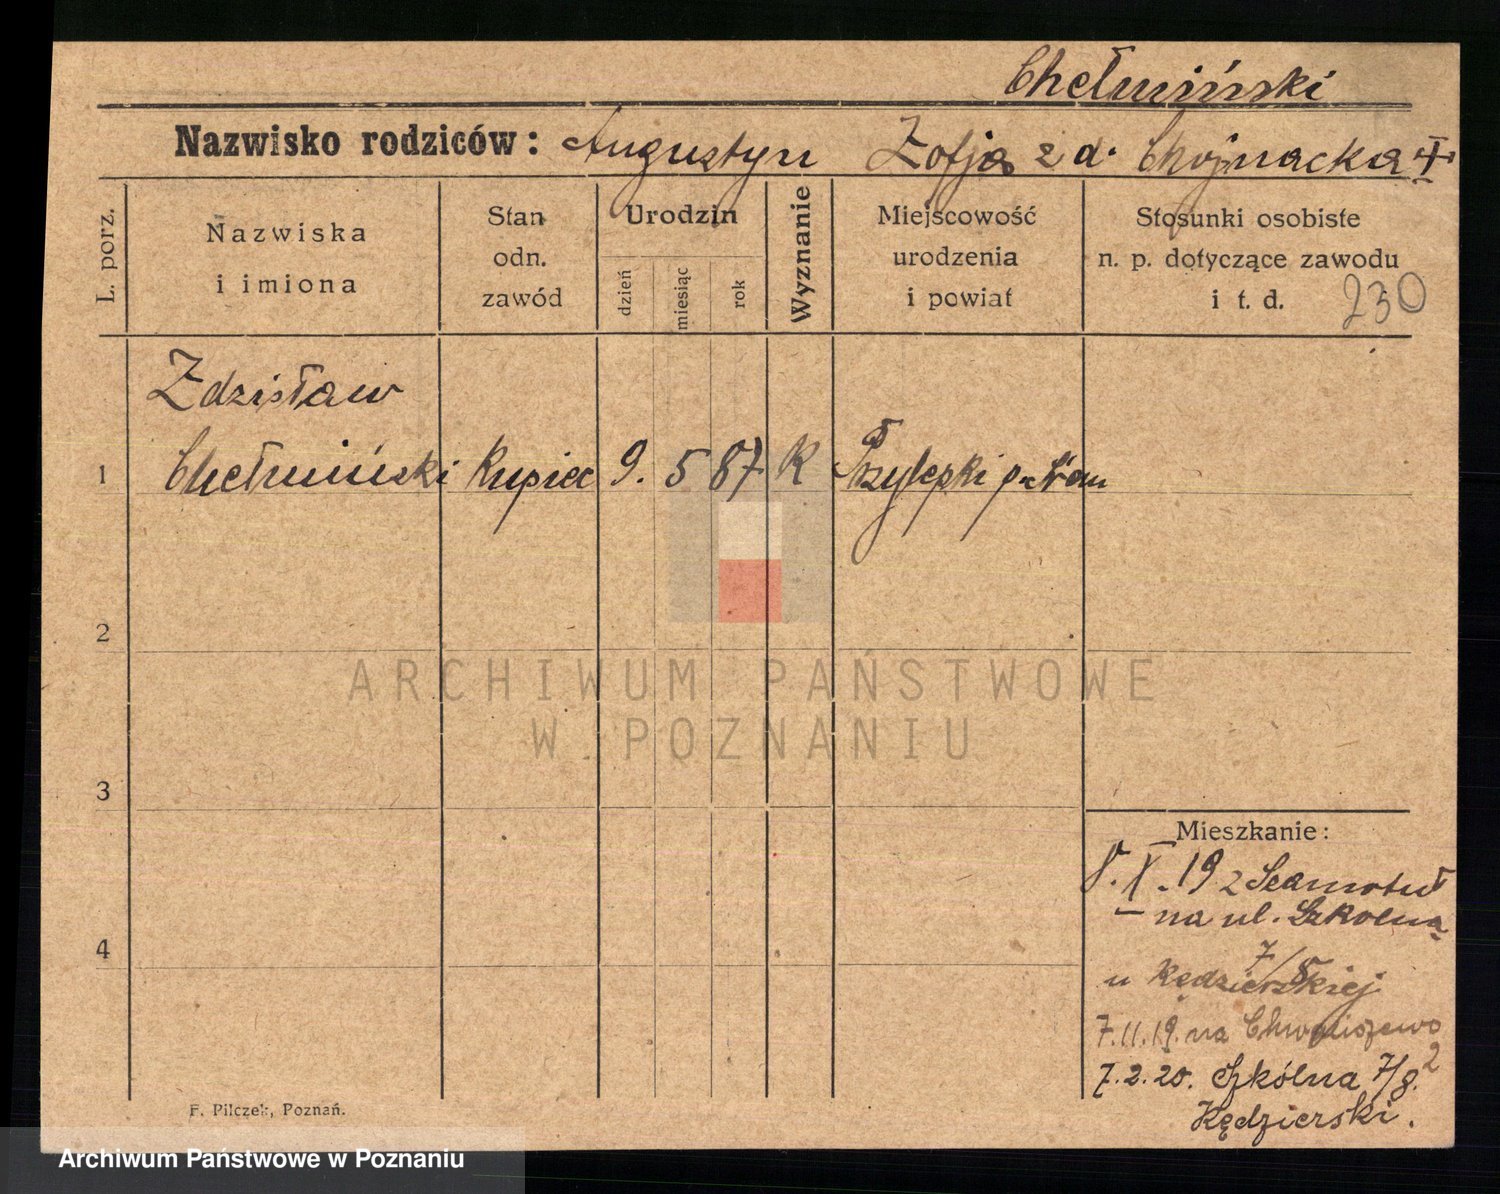 Chełmiński
Nazwisko rodziców: Augustyn Zofja z d. Chojnacka
L. porz.
Nazwiska i imiona
Stan odn. zawód
Urodzin
dzień
miesiąc
rok
Wyznanie
Miejscowość urodzenia i powiat
Stosunki osobiste n. p. dotyczące zawodu i t. d.
230
Zdzisław
1 Chełmiński Kupiec 9. 5 87 K Przylepki p.
2
3
4
Mieszkanie:
8. X. 19 z Szamotuł
na ul. Szkolną
7/8
u Kędzierskiej
7.11.19. na Chwaliszewo
2
7.2.20. Szkólna 7/8.
Kędzierski.
F. Pilczek, Poznań.
ARCHIWUM PAŃSTWOWE
W POZNANIU
Archiwum Państwowe w Poznaniu